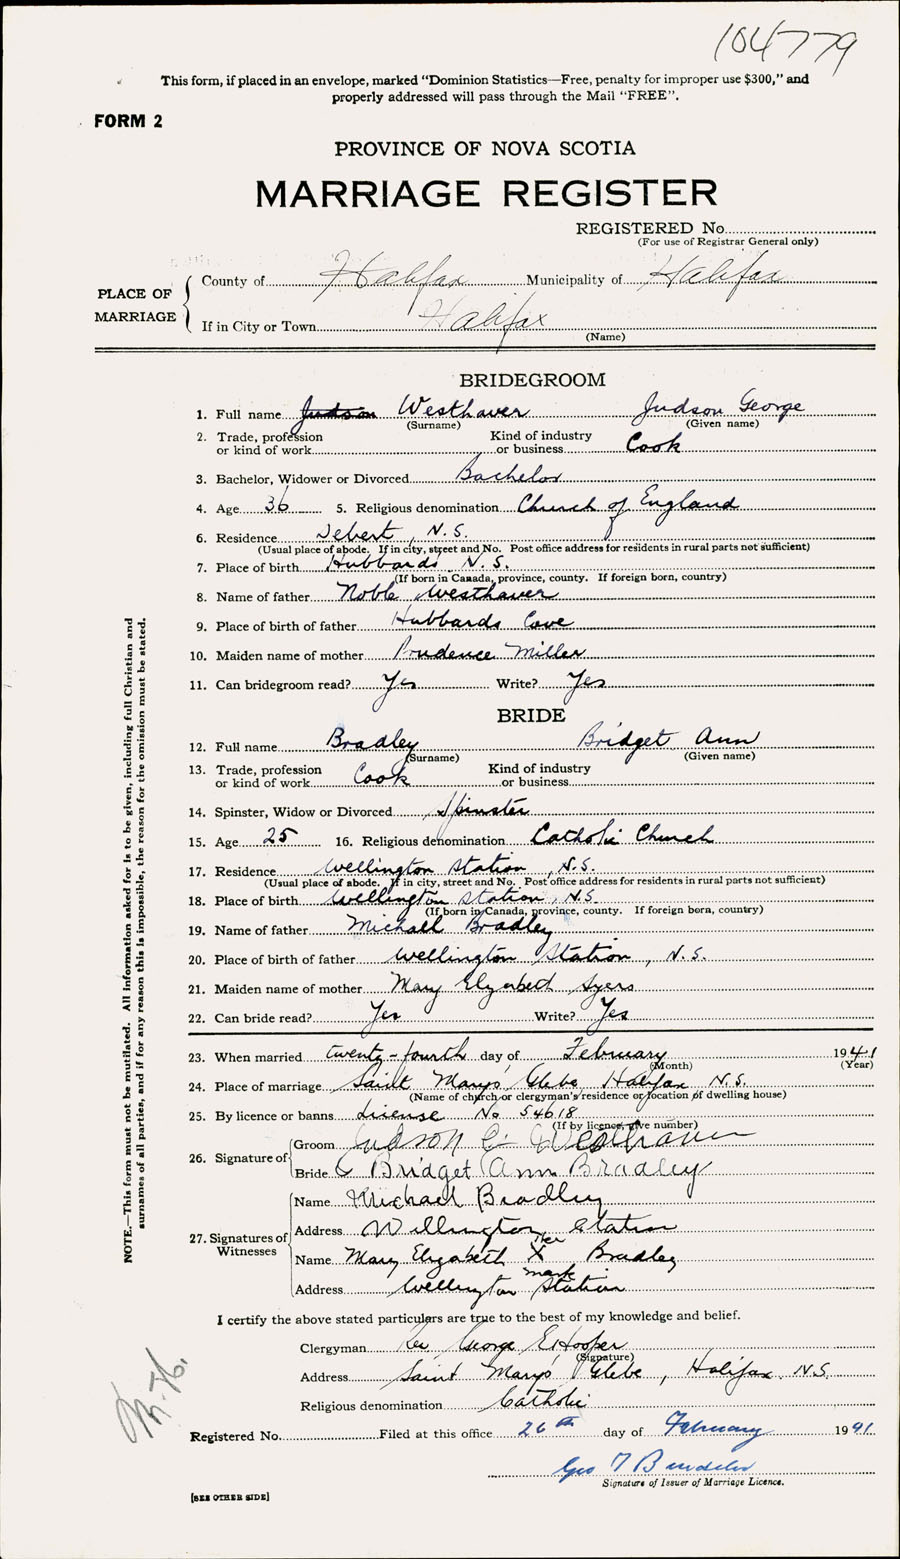 104779
This form, if placed in an envelope, marked "Dominion Statistics—Free, penalty for improper use $300," and
properly addressed will pass through the Mail "FREE".
FORM 2
PROVINCE OF NOVA SCOTIA
MARRIAGE REGISTER
REGISTERED No.
(For use of Registrar General only)
PLACE OF MARRIAGE
County of Halifax Municipality of Halifax
If in City or Town Halifax
(Name)
BRIDEGROOM
1. Full name Judson Westhaver Judson George
(Surname) (Given name)
2. Trade, profession or kind of work Kind of industry or business Cook
3. Bachelor, Widower or Divorced Bachelor
4. Age 36 5. Religious denomination Church of England
6. Residence Debert, N.S.
(Usual place of abode. If in city, street and No. Post office address for residents in rural parts not sufficient)
7. Place of birth Hubbards N.S.
(If born in Canada, province, county. If foreign born, country)
8. Name of father Noble Westhaver
9. Place of birth of father Hubbards Cove
10. Maiden name of mother Prudence Miller
11. Can bridegroom read? Yes Write? Yes
BRIDE
12. Full name Bradley Bridget Ann
(Surname) (Given name)
13. Trade, profession or kind of work Cook Kind of industry or business
14. Spinster, Widow or Divorced Spinster
15. Age 25 16. Religious denomination Catholic Church
17. Residence Wellington Station, N.S.
(Usual place of abode. If in city, street and No. Post office address for residents in rural parts not sufficient)
18. Place of birth Wellington Station, N.S.
(If born in Canada, province, county. If foreign born, country)
19. Name of father Michael Bradley
20. Place of birth of father Wellington Station, N.S.
21. Maiden name of mother Mary Elizabeth Ayers
22. Can bride read? Yes Write? Yes
23. When married twenty-fourth day of February 1941
(Month) (Year)
24. Place of marriage Saint Mary's Glebe Halifax N.S.
(Name of church or clergyman's residence or location of dwelling house)
25. By licence or banns License No 54618
(If by licence, give number)
26. Signature of
Groom Judson G Westhaver
Bride Bridget Ann Bradley
27. Signatures of Witnesses
Name Michael Bradley
Address Wellington Station
Name Mary Elizabeth her X mark Bradley
Address Wellington Station
I certify the above stated particulars are true to the best of my knowledge and belief.
Clergyman Rev George E Hooper
(Signature)
Address Saint Mary's Glebe, Halifax N.S.
Religious denomination Catholic
Registered No. Filed at this office 26th day of February 1941
Geo T
Signature of Issuer of Marriage Licence.
[SEE OTHER SIDE]
NOTE.—This form must not be mutilated. All information asked for is to be given, including full Christian and
surnames of all parties, and if for any reason this is impossible, the reason for the omission must be stated.